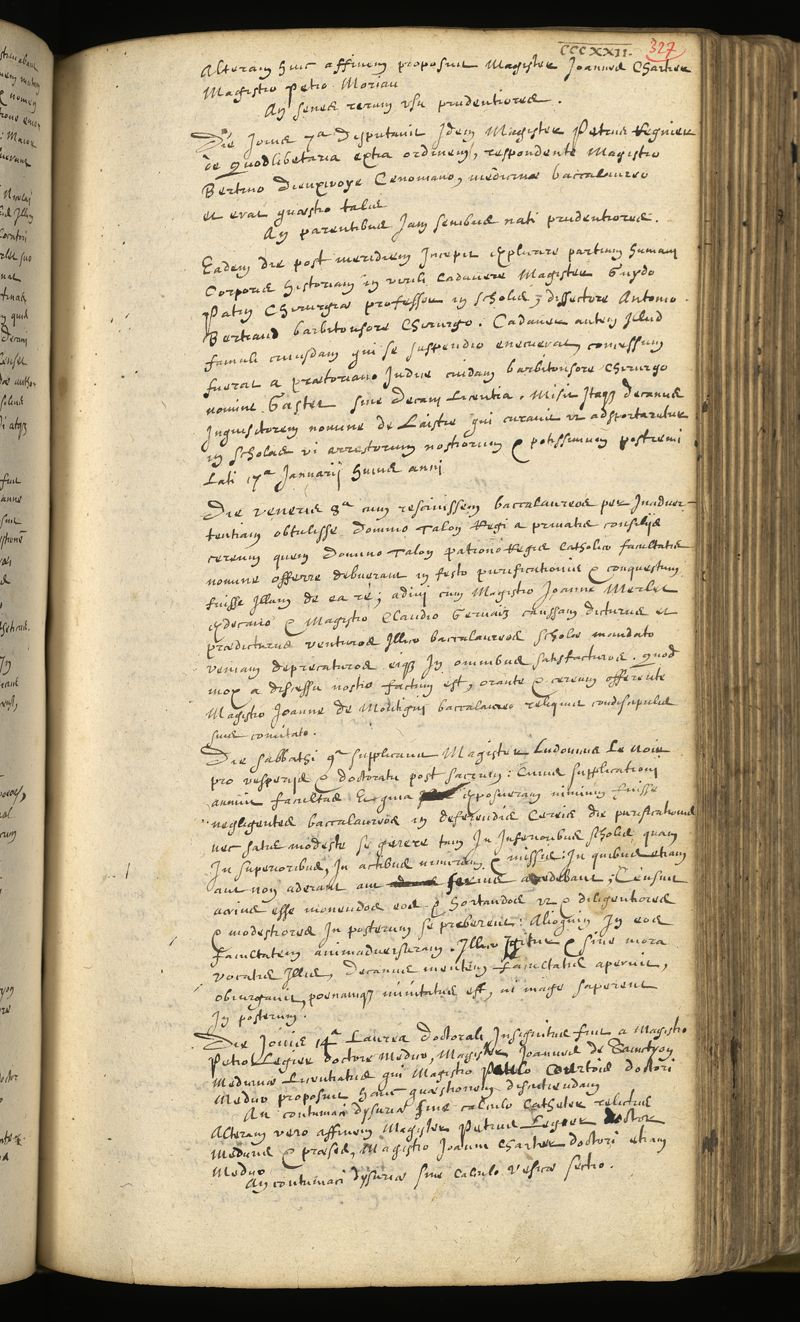 CCCXXII. 327
Alteram huic affinem proposuit Magister Joannes Chartier
Magistro Petro Moriau
An senes rerum usu prudentiores.
Die Jovis 7ª disputavit Idem Magister Petrus Regnier
de Quodlibetaria extra ordinem, respondente Magistro
Bertino Dieuxivoye Cenomano, medicinæ baccalaureo
et erat quæstio talis
An parentibus Jam senibus nati prudentiores.
Eadem die post meridiem Incepit explicare partium humani
Corporis historiam in virili Cadavere Magister Guydo
Patin Chirurgiæ professor in scholis, dissectore Antonio
Bertrand barbitonsore Chirurgo. Cadaver autem Illud
famuli cuiusdam qui se suspendio enecuerat, concessum
fuerat a prætoriano Iudice cuidam barbitonsore Chirurgo
nomine Gastet sine Decani licentia. Misit Itaq3 decanus
Inquisitorem nomine de Laistre qui curavit ut adsportaretur
in scholas vi arrestorum nostrorum & potissimum postremi
Lati 17ª Januarij huius anni
Die veneris 8ª cum rescivissem baccalaureos per Inadver-
tentiam obtulisse Domino Talon Regi a privatis consilijs
cereum quem Domino Talon patrono Regis Catholico facultatis
nomine offerre debuerant in festo purificationis & conquestum
fuisse Illum de ea re; adivi cum Magistro Joanne Merlet
exdecano & Magistro Claudio Gervais caussam dicturus et
prædicturus venturos Illico baccalaureos scholæ mandato
veniam deprecaturos eiq3 In omnibus satisfacturos. Quod
mox a discessu nostro factum est, orante & cereum offerente
Magistro Joanne de Montigni baccalaureo reliquis condiscipulis
suis comitato.
Die sabbathi 9ª supplicavit Magister Ludovicus Le Noir
pro vesperijs & doctoratu post sacrum: Cuius supplicationi
annuit facultas exposueram nimium fuisse
negligentes baccalaureos in deferendis Cereis die purificationis
nec satis modeste se gerere tum In Inferioribus scholis quam
In superioribus, In actibus nimirum & missis: In quibus etiam
aut non aderant aut serius accedebant; Censuit
acrius esse monendos eos & hortandos ut & diligentiores
& modestiores In posterum se preberent: Alioquin In eos
facultatem animadversuram. Illico Igitur & sine mora
vocatis Illis, Decanus mentem facultatis aperuit,
obiurgavit, poenamq3 minitatus est, ni mage saperent
In posterum.
Die Jovis 14ª Laurea doctorali Insignitus fuit a Magistro
Petro Legier doctore Medico, Magister Joannes de Sainctyon
Medicinæ Licentiatus qui Magistro Paulo Courtois doctori
Medico proposuit hanc quæstionem discutiendam
An contumaci dysuriæ sine calculo Catheter relictus
Alteram vero affinem Magister Petrus Legier doctor
Medicus & præses, Magistro Joanni Chartier doctori etiam
Medico
An contumaci dysuriæ sine Calculo vesicæ sectio.